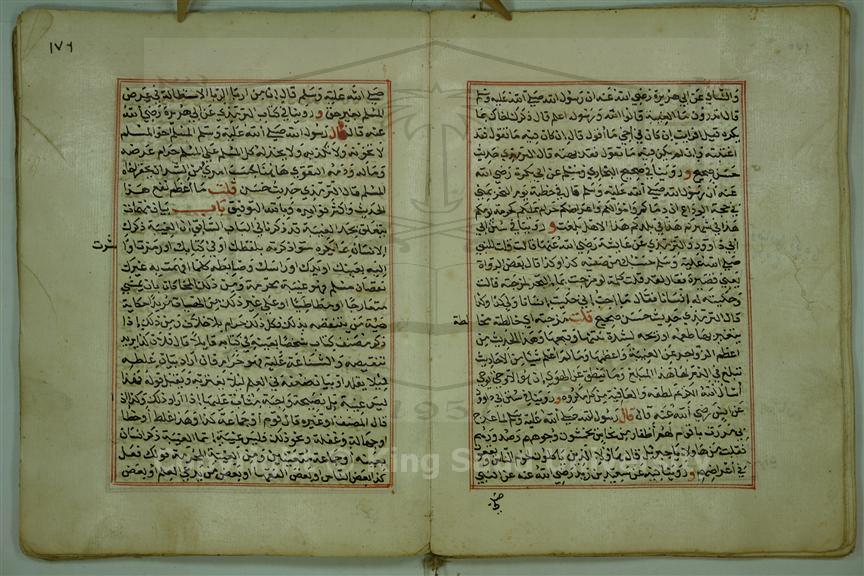 والنسائي عن ابي هريرة رضي الله عنه ان رسول الله صلى الله عليه وسلم
قال اتدرون ما الغيبة قالوا الله ورسوله اعلم قال ذكرك اخاك بما
يكره قيل افرايت ان كان في اخي ما اقول قال ان كان فيه ما تقول فقد
اغتبته وان لم يكن فيه ما تقول فقد بهته قال الترمذي حديث
حسن صحيح وروينا في صحيحي البخاري ومسلم عن ابي بكرة رضي الله
عنه ان رسول الله صلى الله عليه وسلم قال في خطبته يوم النحر بمنى
في حجة الوداع ان دماءكم واموالكم واعراضكم حرام عليكم كحرمة يومكم
هذا في شهركم هذا في بلدكم هذا الاهل بلغت وروينا في سنن ابي
داود والترمذي عن عائشة رضي الله عنها قالت قلت للنبي
صلى الله عليه وسلم حسبك من صفية كذا وكذا قال بعض الرواة
يعني قصيرة فقال لقد قلت كلمة لو مزجت بماء البحر لمزجته قالت
وحكيت له انسانا فقال ما احب اني حكيت انسانا وان لي كذا وكذا
قال الترمذي حديث حسن صحيح قلت مزجته اي خالطته مخا
لطة
يتغير بها طعمه او ريحه لشدة نتنها وقبحها وهذا الحديث من
اعظم الزواجر عن الغيبة واعظمها وما اعلم شيئا من الاحاديث
تبلغ في الذم لها هذا المبلغ وما ينطق عن الهوى ان هو الا وحي يوحى
نسأل الله الكريم لطفه والعافية من كل مكروه وروينا في سنن ابي داود
عن انس رضي الله عنه قال قال رسول الله صلى الله عليه وسلم لما عرج
بي مررت باقوام لهم اظفار من نحاس يخمشون وجوههم وصدورهم
فقلت من هؤلاء يا جبريل قال هؤلاء الذين ياكلون لحوم الناس ويقعون
في اعراضهم وروينا فيه عن سعيد بن زيد رضي الله عنه عن النبي
صلى
١٧٦
صلى الله عليه وسلم قال ان من اربا الربا الاستطالة في عرض
المسلم بغير حق وروينا في كتاب الترمذي عن ابي هريرة رضي الله
عنه قال قال رسول الله صلى الله عليه وسلم المسلم اخو المسلم
لا يخونه ولا يكذبه ولا يخذله كل المسلم على المسلم حرام عرضه
وماله ودمه التقوى هاهنا بحسب امرئ من الشر ان يحقر اخاه
المسلم قال الترمذي حديث حسن قلت ما اعظم نفع هذا
الحديث واكثر فوايده وبالله التوفيق باب بيان مهمات
تتعلق بحد الغيبة قد ذكرنا في الباب السابق ان الغيبة ذكرك
الانسان بما يكره سواء ذكرته بلفظك او في كتابك او رمزت او
اشرت
اليه بعينك او يدك او راسك وضابطه كلما افهمت به غيرك
نقصان مسلم فهو غيبة محرمة ومن ذلك المحاكاة بان يمشي
متعارجا او مطاطيا او على غير ذلك من الهيئات مريدا حكاية
هيئة من ينتقصه بذلك فكل ذلك حرام بلا خلاف ومن ذلك اذا
ذكر مصنف كتاب شخصا بعينه في كتابه قايلا قال فلان كذا يريد
تنقيصه والشناعة عليه فهو حرام فان اراد بيان غلطه
لئلا يقلد او بيان ضعفه في العلم لئلا يغتر به ويقبل قوله فهذا
ليس غيبة بل نصيحة واجبة يثاب عليها اذا اراد ذلك وكذا اذا
قال المصنف او غيره قال قوم او جماعة كذا وهذا غلط او خطا
او جهالة وغفلة ونحو ذلك فليس غيبة انما الغيبة ذكر انسان
بعينه او جماعة معينين ومن الغيبة المحرمة قولك فعل
كذا بعض الناس او بعض الفقهاء او بعض من يدعي العلم او بعض